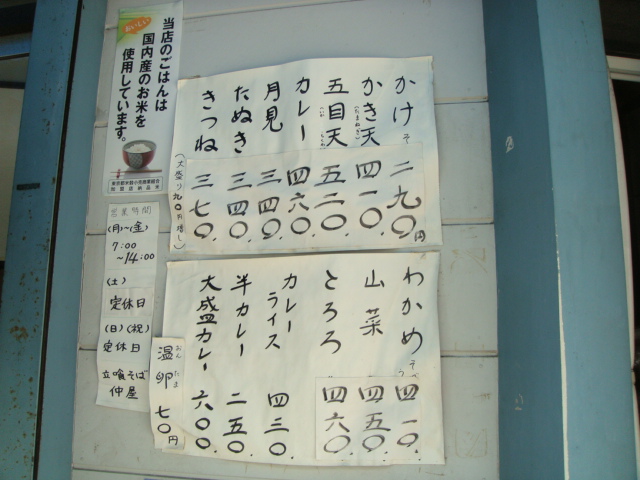 当店のごはんは
おいしい
国内産のお米を
使用しています。
かけそ 二九〇円
かき天(たまねぎ) 四一〇.
五目天 五二〇.
カレー 四六〇.
月見 三四〇.
たぬき 三四〇.
きつね 三七〇.
(大盛り九〇円増し)
営業時間
(月)~(金)
7:00
~14:00
(土)
定休日
(日)(祝)
定休日
立喰そば
仲屋
わかめそ 四一〇.
山菜 四五〇.
とろろ 四六〇.
カレーライス 四三〇.
半カレー 二五〇.
大盛カレー 六〇〇.
温卵 七〇円
おんたま